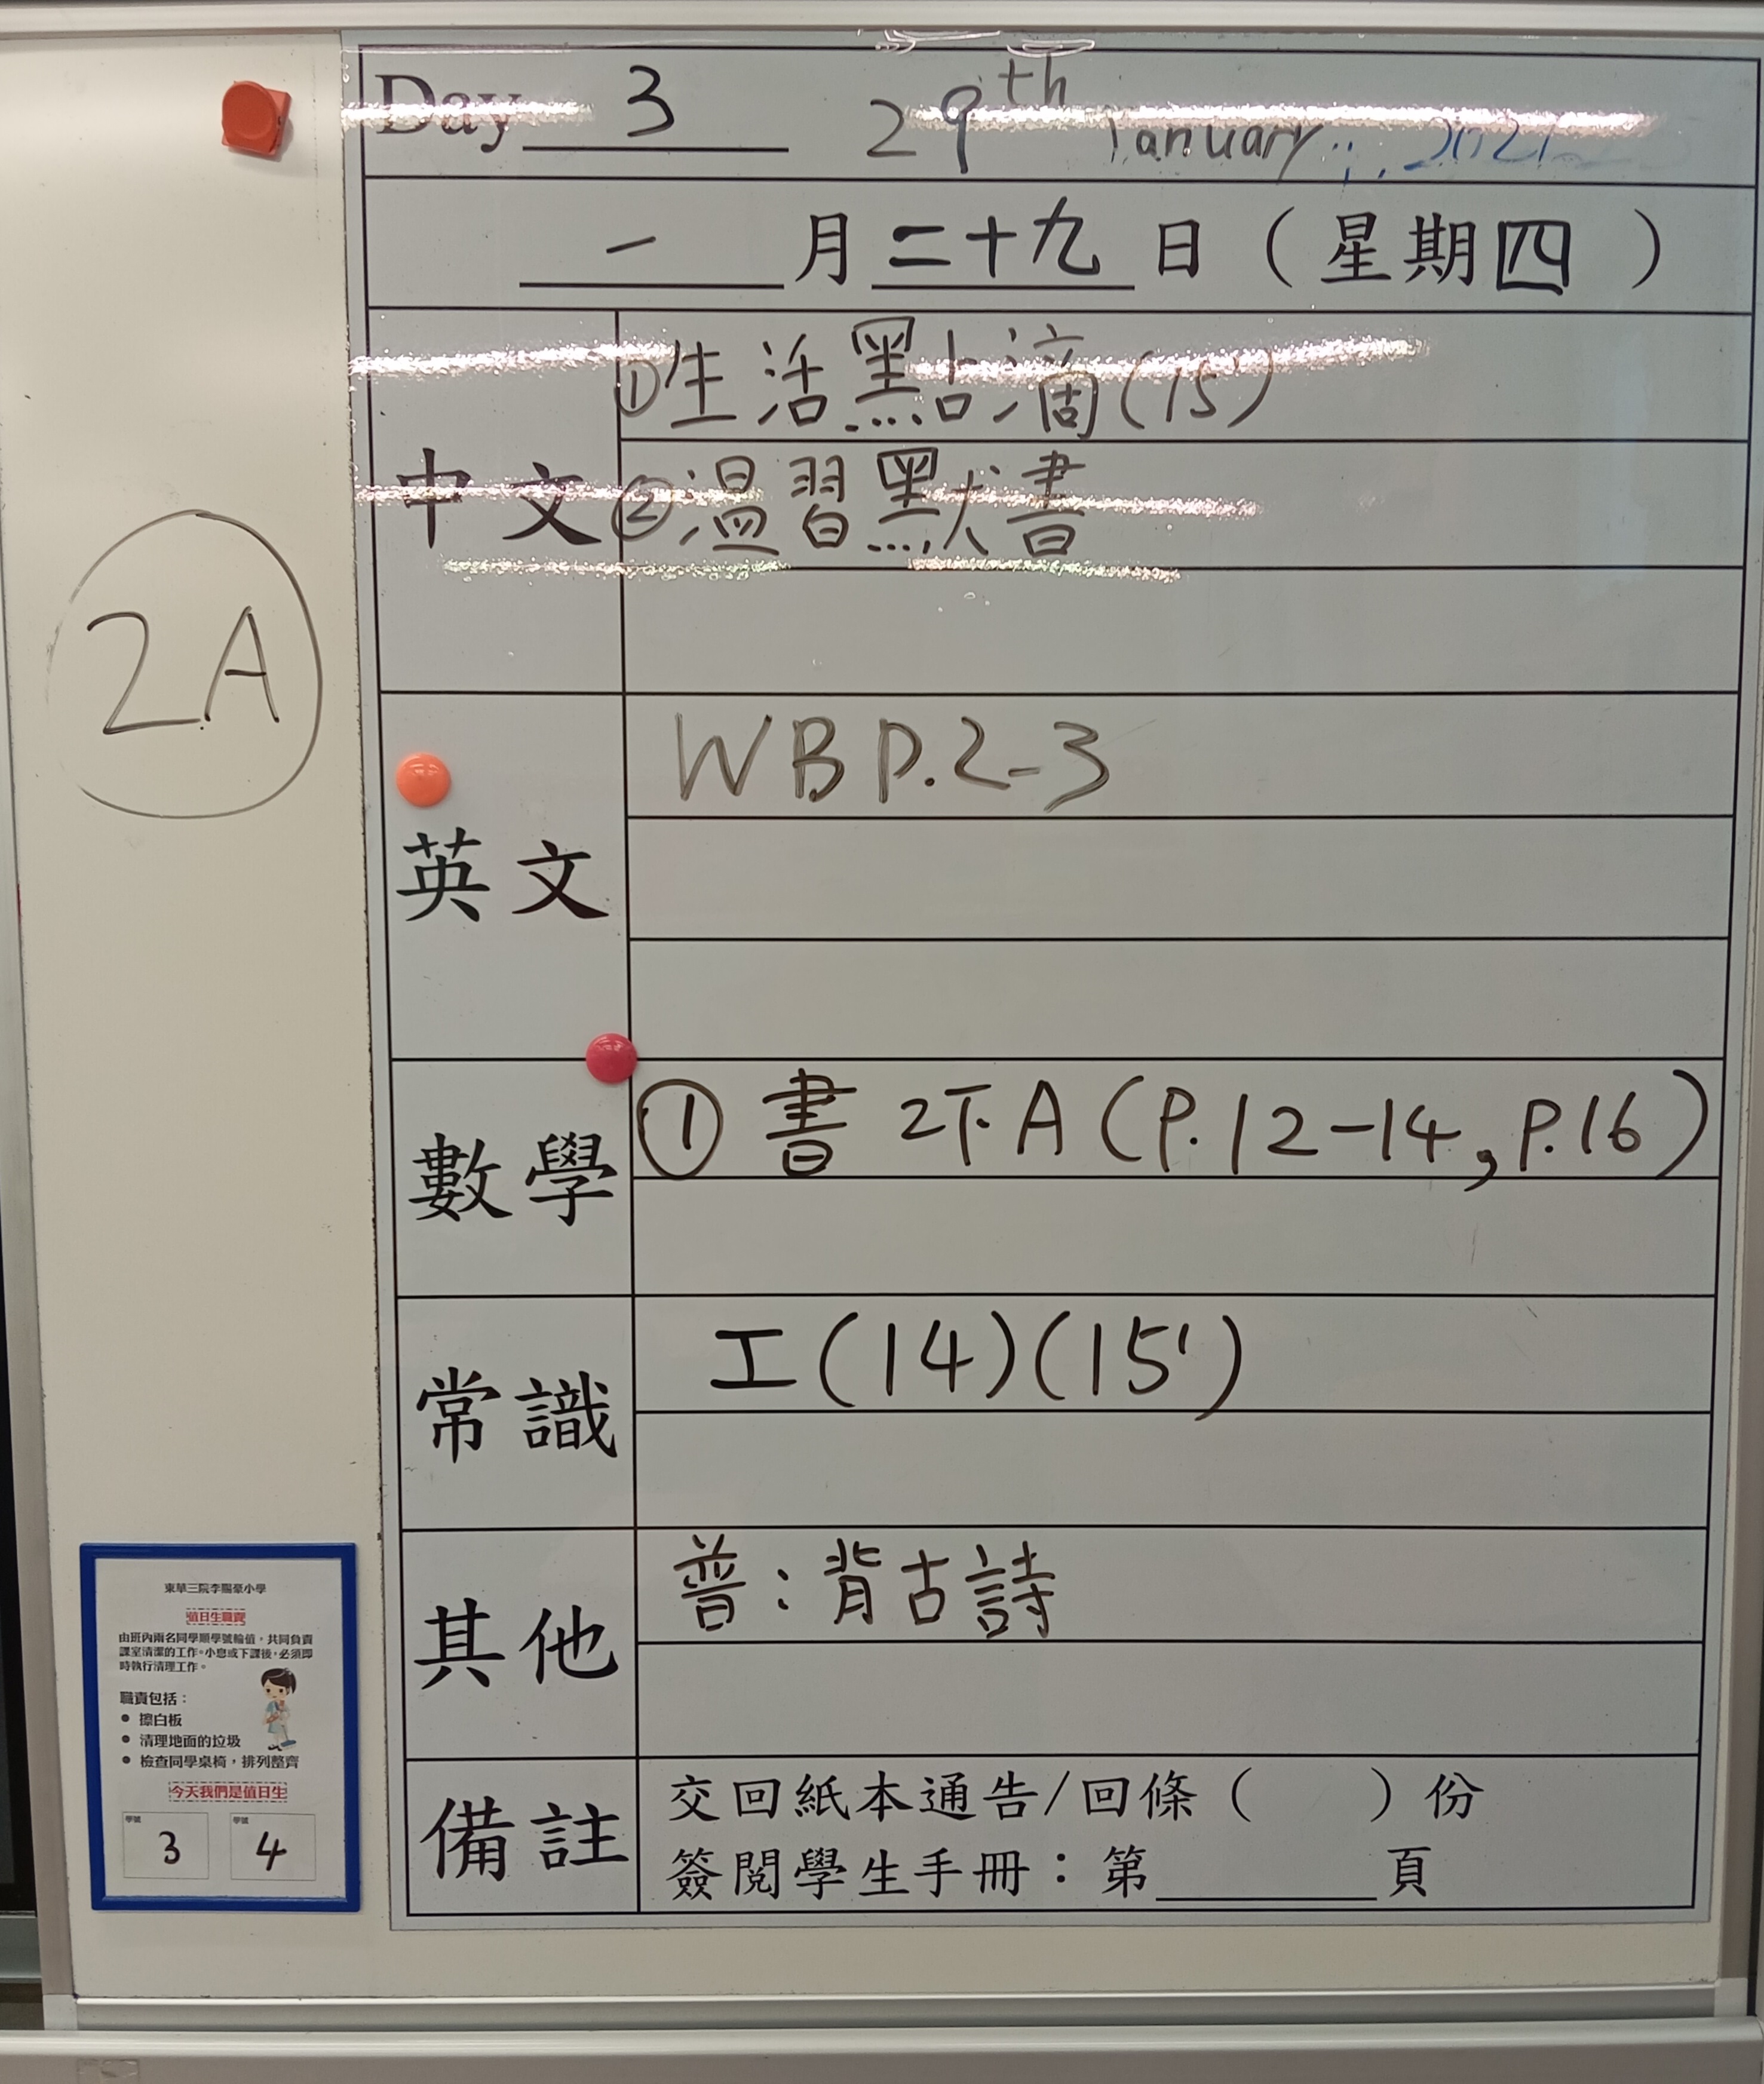 Day 3 29th January
一 月 二十九 日 ( 星期四 )
2A
中文
①生活點滴(15')
②温習默書
英文
WB P.2-3
數學
① 書 2下A (P.12-14, P.16)
常識
工(14)(15')
其他
普:背古詩
備註
交回紙本通告/回條( )份
簽閱學生手冊:第 頁
東華三院李賜豪小學
值日生職責
由班內兩名同學順學號輪值,共同負責
課室清潔的工作。小息或下課後,必須即
時執行清理工作。
職責包括:
• 擦白板
• 清理地面的垃圾
• 檢查同學桌椅,排列整齊
今天我們是值日生
學號 學號
3 4